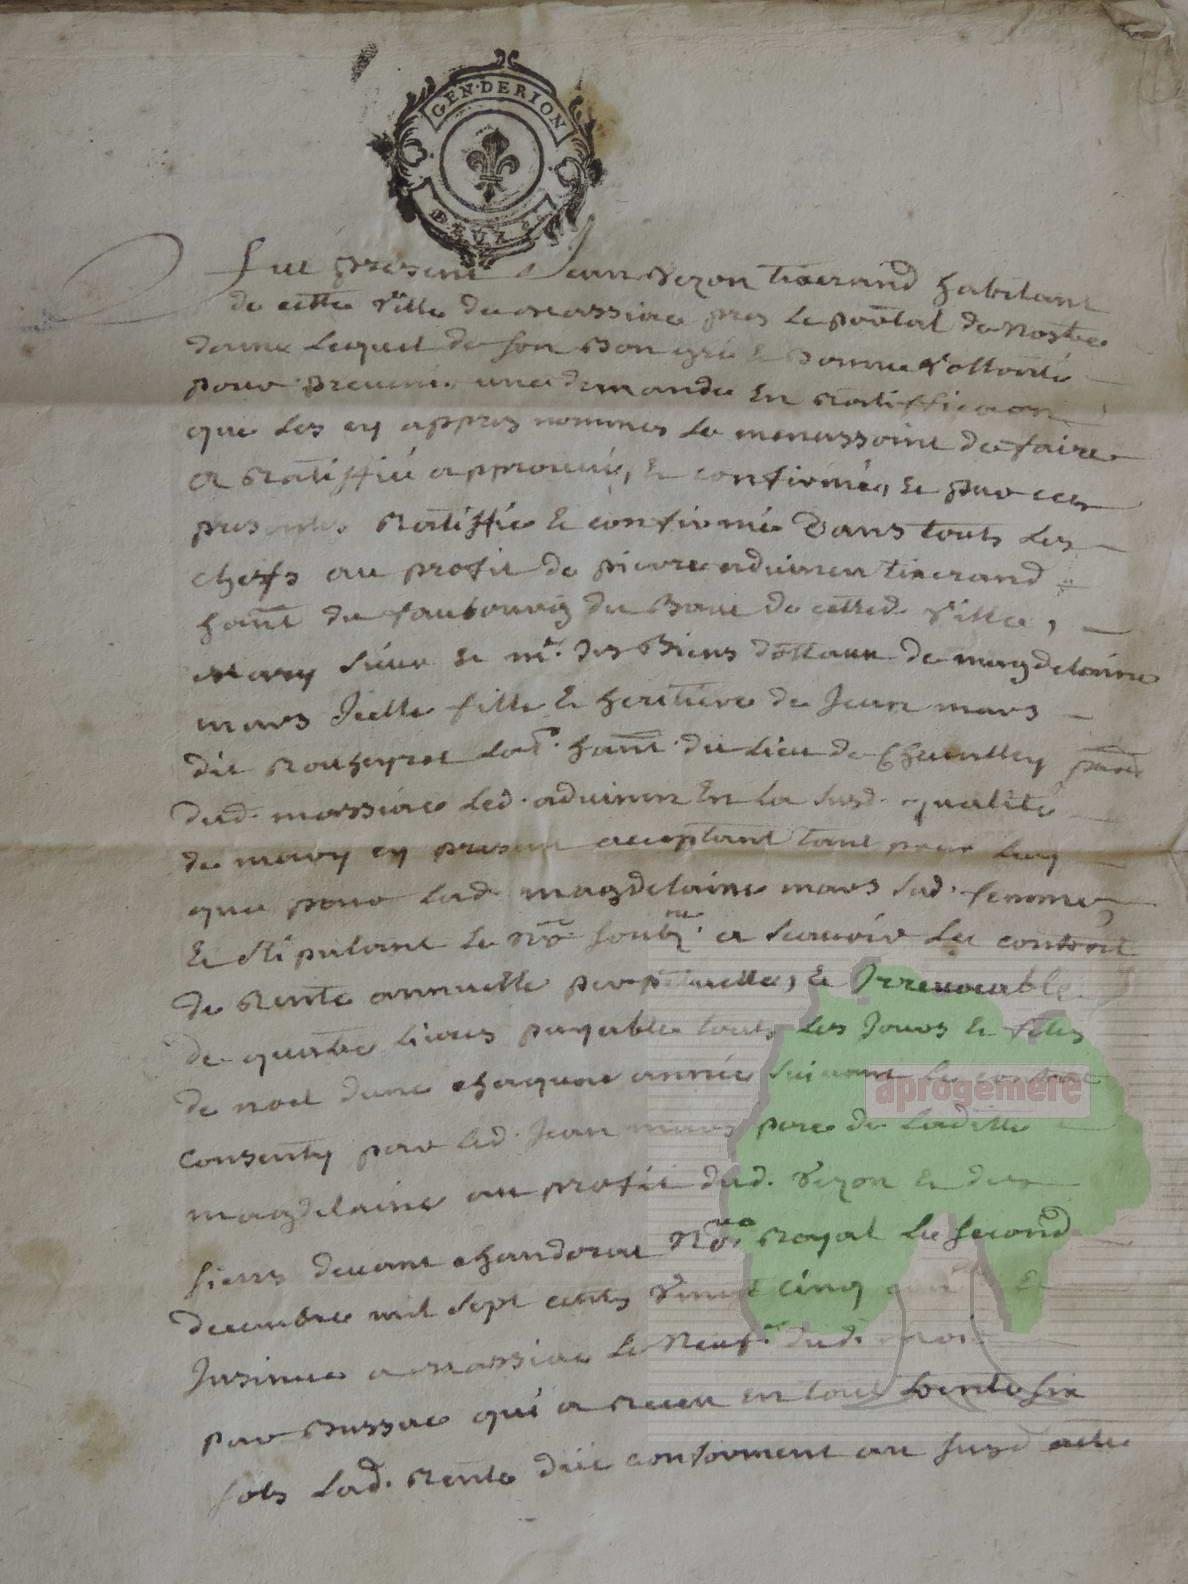 GEN·DE RION
DEUX S
Fut present Jean Vezon tixerand habitant
de cette Ville de massiac pres le portal de Nostre
dame lequel de son Bon gré & Bonne Vollonté
pour prevenir une demande En Ratiffica͞on
que les cy appres nommes le menassoint de faire
a Ratiffié approuvé, & confirmé, & par ces
presentes Ratiffie & confirme Dans touts Les
chefs au profit de pierre aduinen tixerand
ha͞nt du faubourg du Bau de cetted. Ville,
Mary sieur & m͞e. des Biens dottaux de magdelaine
mars Jcelle fille & heritiere de Jean mars
dit Rouheyrot lab͞r. ha͞nt du Lieu de Chamlley
dud. massiac led. aduinen En la susd. qualité
de mary cy present acceptant tant pour Luy
que pour Lad. magdelaine mars sad. femme,
& stipulant le N͞re soub͞ne. a scavoir Le contrat
de Rente annuelle perpetuelle, & Jrrevocable
de quatre livres payable touts Les Jours & festes
de noel dune chaquune année suivant Le contrat
Consenty par led. Jean mars pere de Laditte
magdelaine au profit dud. Vezon & des
siens devant chandorat N͞re Royal Le second
decembre mil sept cents Vingt cinq &
Jnsinué a massiac Le Neuf͞e. dud. mois
par Bussac qui a Receu en tout Trente six
sols Lad. Rente duë conforment au susd acte
aprogemere